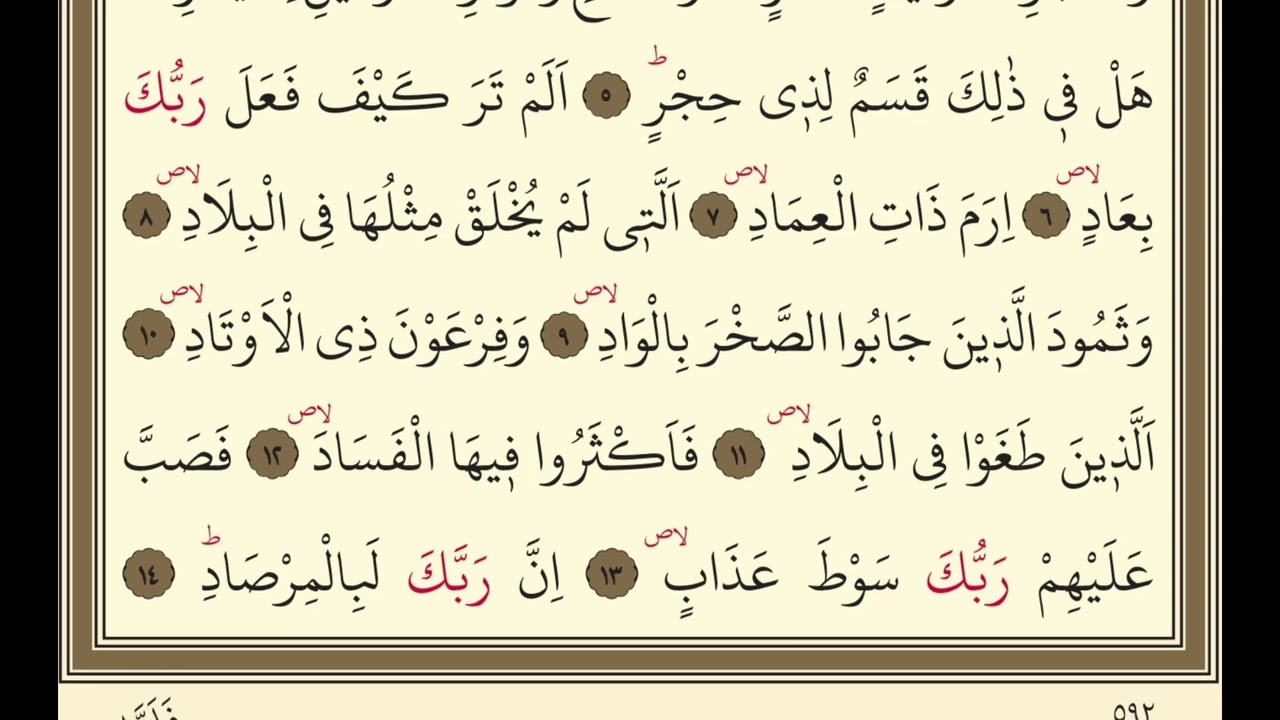 هَلْ فٖي ذٰلِكَ قَسَمٌ لِذٖي حِجْرٍ ط ٥ اَلَمْ تَرَ كَيْفَ فَعَلَ رَبُّكَ
بِعَادٍ لاص ٦ اِرَمَ ذَاتِ الْعِمَادِ لاص ٧ اَلَّتٖي لَمْ يُخْلَقْ مِثْلُهَا فِي الْبِلَادِ لاص ٨
وَثَمُودَ الَّذٖينَ جَابُوا الصَّخْرَ بِالْوَادِ لاص ٩ وَفِرْعَوْنَ ذِي الْاَوْتَادِ لاص ١٠
اَلَّذٖينَ طَغَوْا فِي الْبِلَادِ لاص ١١ فَاَكْثَرُوا فٖيهَا الْفَسَادَ لاص ١٢ فَصَبَّ
عَلَيْهِمْ رَبُّكَ سَوْطَ عَذَابٍ لاص ١٣ اِنَّ رَبَّكَ لَبِالْمِرْصَادِ ط ١٤
٥٩٢